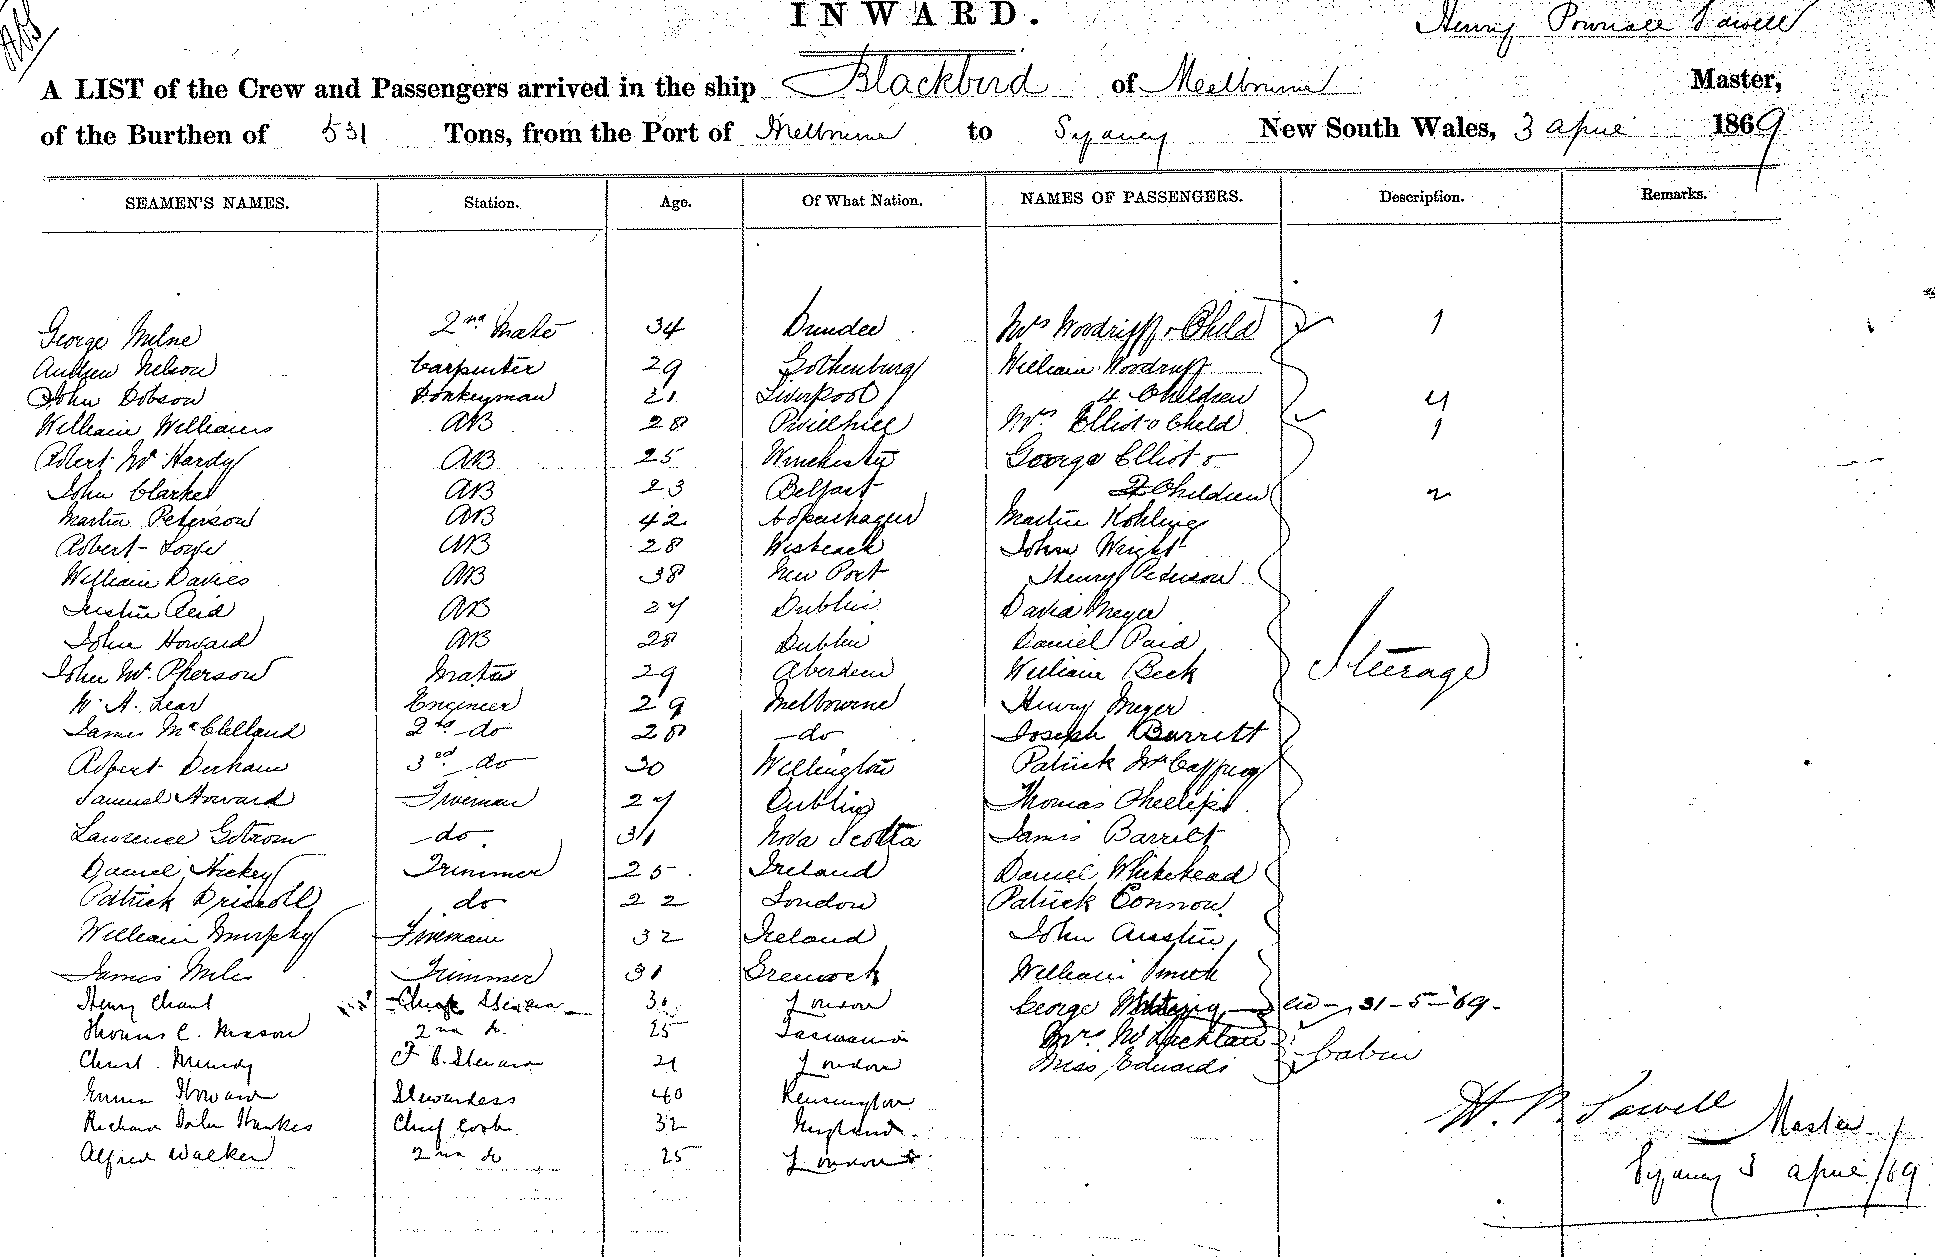 INWARD.
Henry Pownall
A LIST of the Crew and Passengers arrived in the ship Blackbird of Melbourne Master,
of the Burthen of 531 Tons, from the Port of Melbourne to Sydney New South Wales, 3 April 1869
SEAMEN'S NAMES. Station. Age. Of What Nation. NAMES OF PASSENGERS. Description. Remarks.
George Milne 2nd Mate 34 Dundee Mrs Woodriff & Child 1
Andrew Nelson Carpenter 29 Gothenburg William Woodruff
John Dobson Donkeyman 21 Liverpool 4 Children 4
William Williams AB 28 Pwllheli Mrs Elliot & Child 1
Robert Mc Hardy AB 25 Winchester George Elliot &
John Clarke AB 23 Belfast 2 Children 2
Martin Peterson AB 42 Copenhagen Martin Kohling
Robert Lowe AB 28 Wisbeach John Wright
William Davies AB 38 New Port Henry Peterson
Reid AB 27 Dublin David Meyer
John Howard AB 28 Dublin Daniel Paid
John Mc Pherson Mate 29 Aberdeen William Beck Steerage
W. A. Lear Engineer 29 Melbourne Henry Meyer
James McClelland 2nd do 28 do Joseph Barrett
Robert Derham 3rd do 30 Wellington Patrick McCaffrey
Samuel Howard Fireman 27 Dublin Thomas Phillips
Lawrence do 31 Nova Scotia James Barrett
Daniel Hickey Trimmer 25 Ireland Daniel Whitehead
Patrick Driscoll do 22 London Patrick Connon
William Murphy Fireman 32 Ireland John Austin
James Miles Trimmer 31 Greenock William Smith
Henry Chant Chief Steward 30 London George 31-5-69
Thomas C. Mason 2nd do 25 Tasmania Mrs McLachlan
Chast. Mundy F. C. Steward 21 London Miss Edwards Cabin
Emma Howard Stewardess 40 Kensington
Richard John Hawkes Chief Cook 32 England
Alfred Walker 2nd do 25 London
H. P.
Master
Sydney 3 April/69